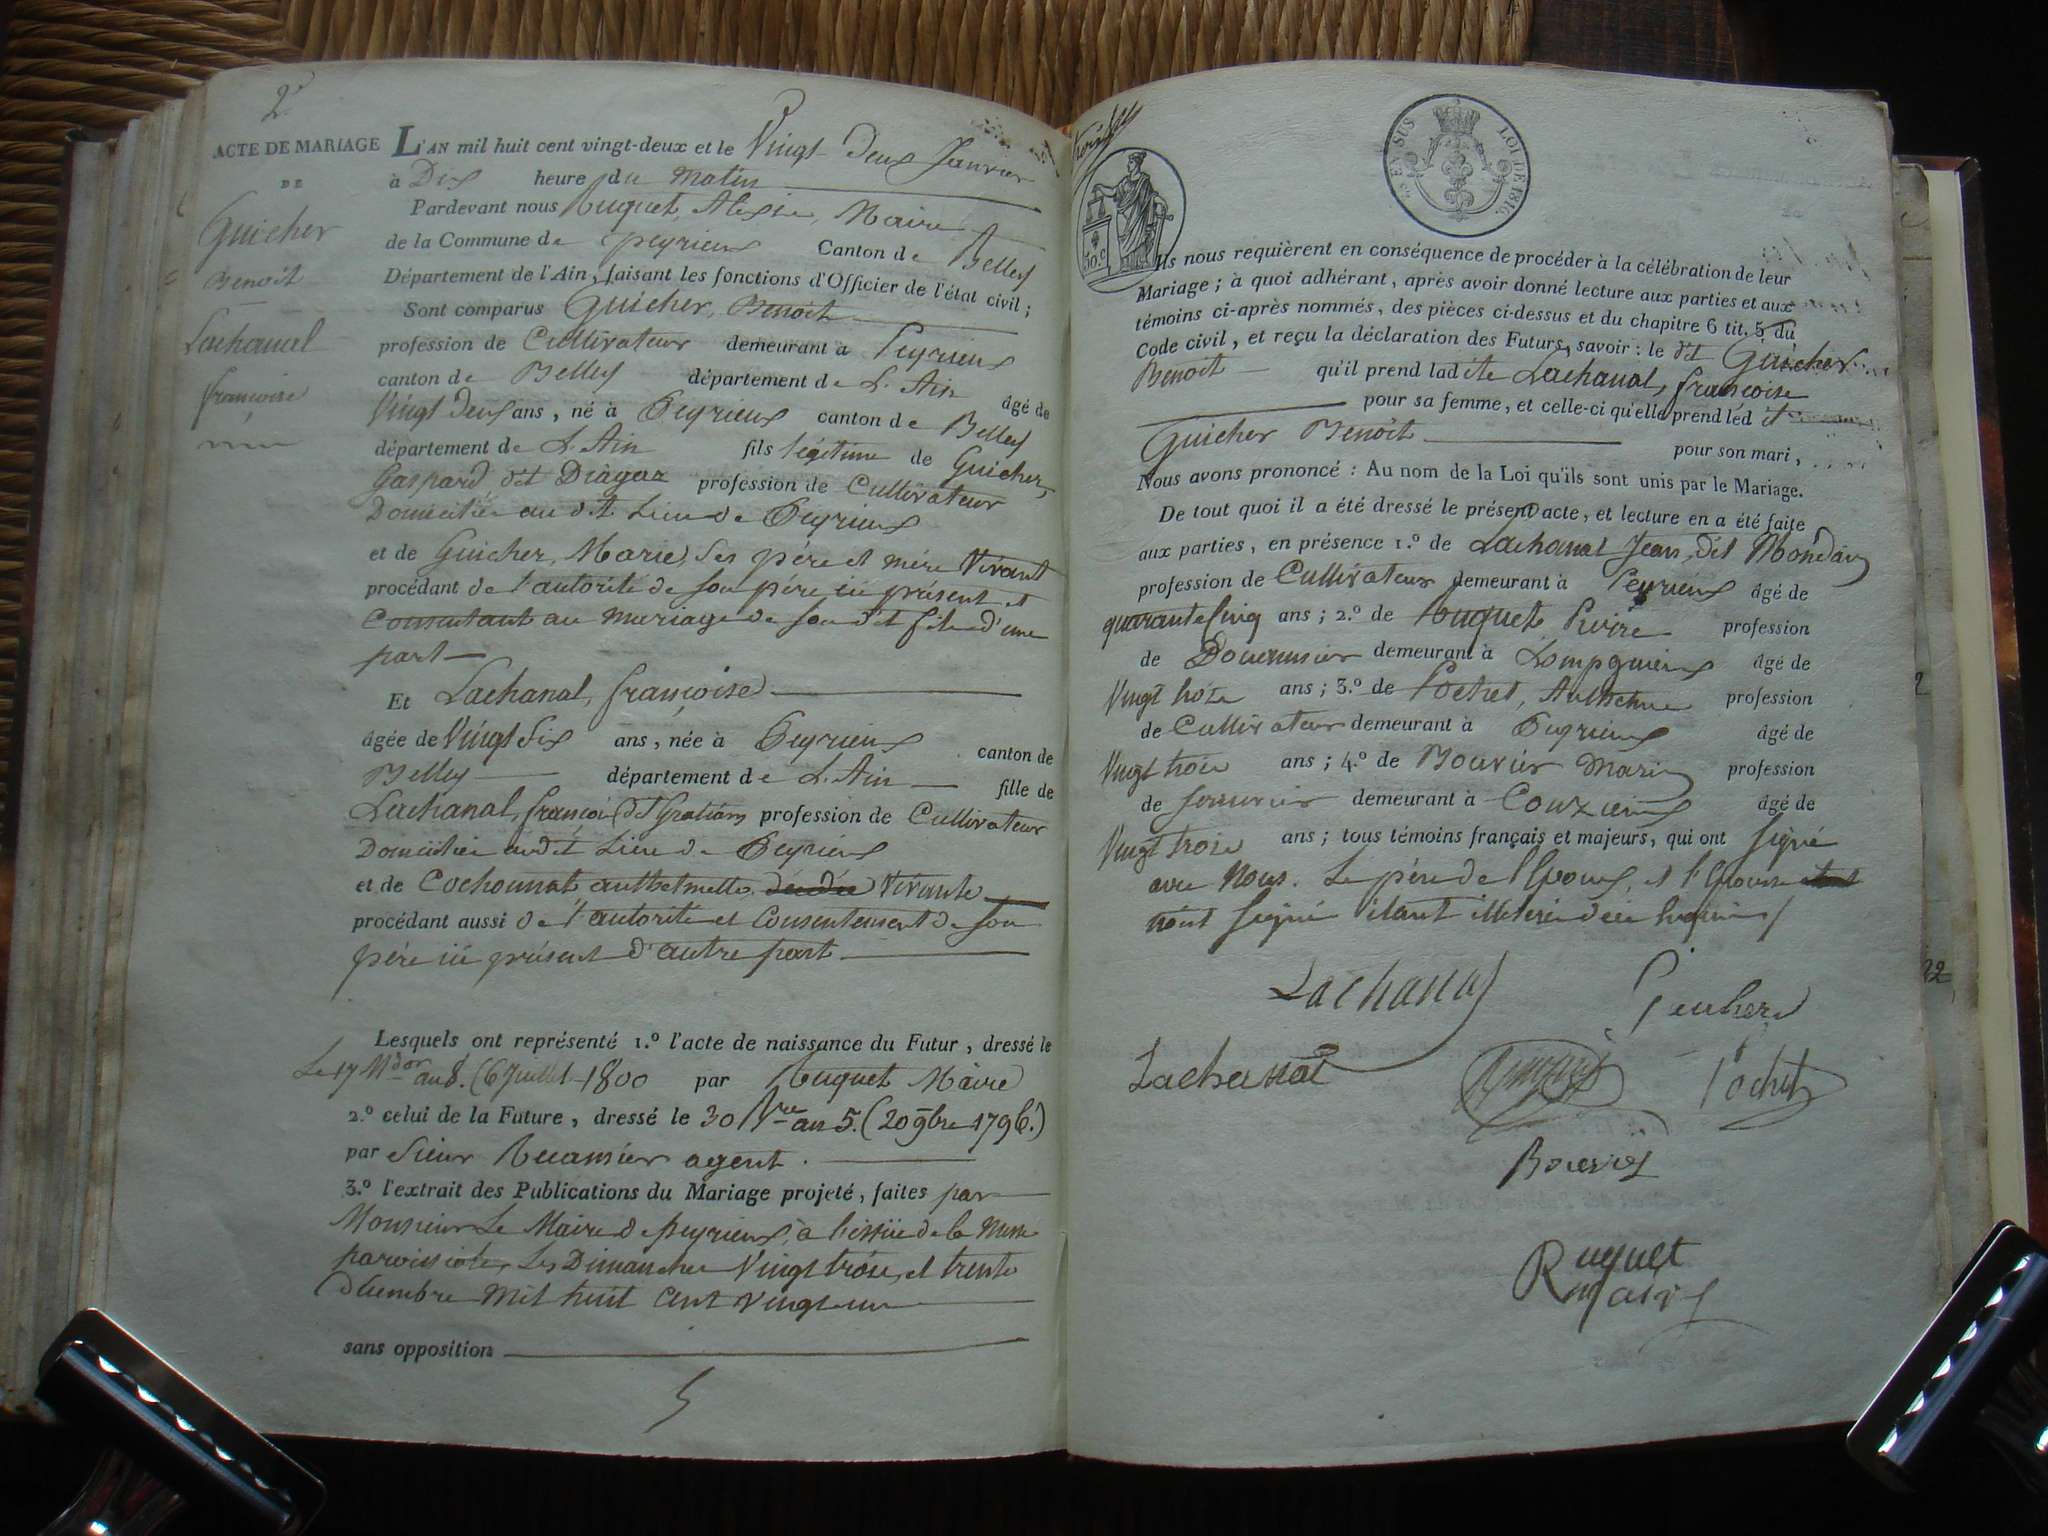 2.e
ACTE DE MARIAGE
DE
Guicher
Benoit
Lachanal
françoise
L'AN mil huit cent vingt-deux et le Vingt deux Janvier
à Dix heure du Matin
Pardevant nous Ruquet, Alexis, Maire
de la Commune de peyrieux Canton de Belley
Département de l'Ain, faisant les fonctions d'Officier de l'état civil;
Sont comparus Guicher, Benoit
profession de Cultivateur demeurant à Peyrieux
canton de Belley département de L'Ain âgé de
Vingt deux ans, né à Peyrieux canton de Belley
département de L'Ain fils légitime de Guicher,
Gaspard dit Diagaz profession de Cultivateur
Domicilié au dit Lieu de Peyrieux
et de Guicher, Marie, Ses père et mère Vivant
procédant de l'autorité de son père ici présent et
Consentant au mariage de son dit fils d'une
part
Et Lachanal, françoise
âgée de Vingt Six ans, née à Peyrieux canton de
Belley département de L'Ain fille de
Lachanal, françois (dit Gratian) profession de Cultivateur
Domicilié audit Lieu de Peyrieux
et de Cochonnat, anthelmette, décédée Vivante
procédant aussi de l'autorité et Consentement de son
père ici présent d'autre part
Lesquels ont représenté 1.º l'acte de naissance du Futur, dressé le
Le 17 Mdor an 8. (6 Juillet 1800 par Ruquet Maire
2.º celui de la Future, dressé le 30 Vre an 5. (20 9bre 1796.)
par Sieur Recamier agent.
3.º l'extrait des Publications du Mariage projeté, faites par
Monsieur Le Maire de peyrieux, à l'issüe de la Messe
paroissiale, Les Dimanches Vingt trois, et trente
Décembre Mil huit Cent Vingt un
sans opposition
EN SUS LOI DE 1816.
50.c
Ils nous requièrent en conséquence de procéder à la célébration de leur
Mariage; à quoi adhérant, après avoir donné lecture aux parties et aux
témoins ci-après nommés, des pièces ci-dessus et du chapitre 6 tit. 5, du
Code civil, et reçu la déclaration des Futurs, savoir: le dit Guicher
Benoit qu'il prend ladite Lachanal, françoise
pour sa femme, et celle-ci qu'elle prend led it
Guicher Benoit pour son mari,
Nous avons prononcé: Au nom de la Loi qu'ils sont unis par le Mariage.
De tout quoi il a été dressé le présent acte, et lecture en a été faite
aux parties, en présence 1.º de Lachanal Jean, dit Mondan
profession de Cultivateur demeurant à Peyrieux âgé de
quarante Cinq ans; 2.º de Ruquet Pierre profession
de Douannier demeurant à Lompgnieux âgé de
Vingt trois ans; 3.º de Pochet, Anthelme profession
de Cultivateur demeurant à Peyrieux âgé de
Vingt trois ans; 4.º de Bouvier Marin profession
de Serrurier demeurant à Conzieux âgé de
Vingt trois ans; tous témoins français et majeurs, qui ont Signé
avec Nous. Le père de l'Epoux, et l'Epouse
n'ont Signé étant illeteré de ce Requis
Lachanal
Guicher
Lachanal
Ruquet
Pochet
Bouvier
Ruquet
maire